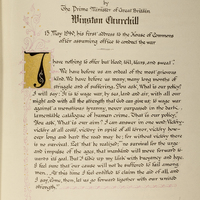 by
The Prime Minister of Great Britain
Winston Churchill
13 May 1940, his first address to the House of Commons
after assuming office to conduct the war
I have nothing to offer but blood, toil, tears, and sweat.
We have before us an ordeal of the most grievous
kind. We have before us many, many long months of
struggle and of suffering. You ask, What is our policy?
I will say: It is to wage war, by sea, land and air, with all our
might and with all the strength that God can give us: to wage war
against a monstrous tyranny, never surpassed in the dark,
lamentable catalogue of human crime. That is our policy.
You ask, What is our aim? I can answer in one word: Victory-
victory at all costs, victory in spite of all terror, victory, how-
ever long and hard the road may be; for without victory there
is no survival. Let that be realised; no survival for the urge
and impulse of the ages, that mankind will move forward to-
wards its goal. But I take up my task with buoyancy and hope.
I feel sure that our cause will not be suffered to fail among
men. At this time I feel entitled to claim the aid of all, and
I say, Come, then, let us go forward together with our united
strength."